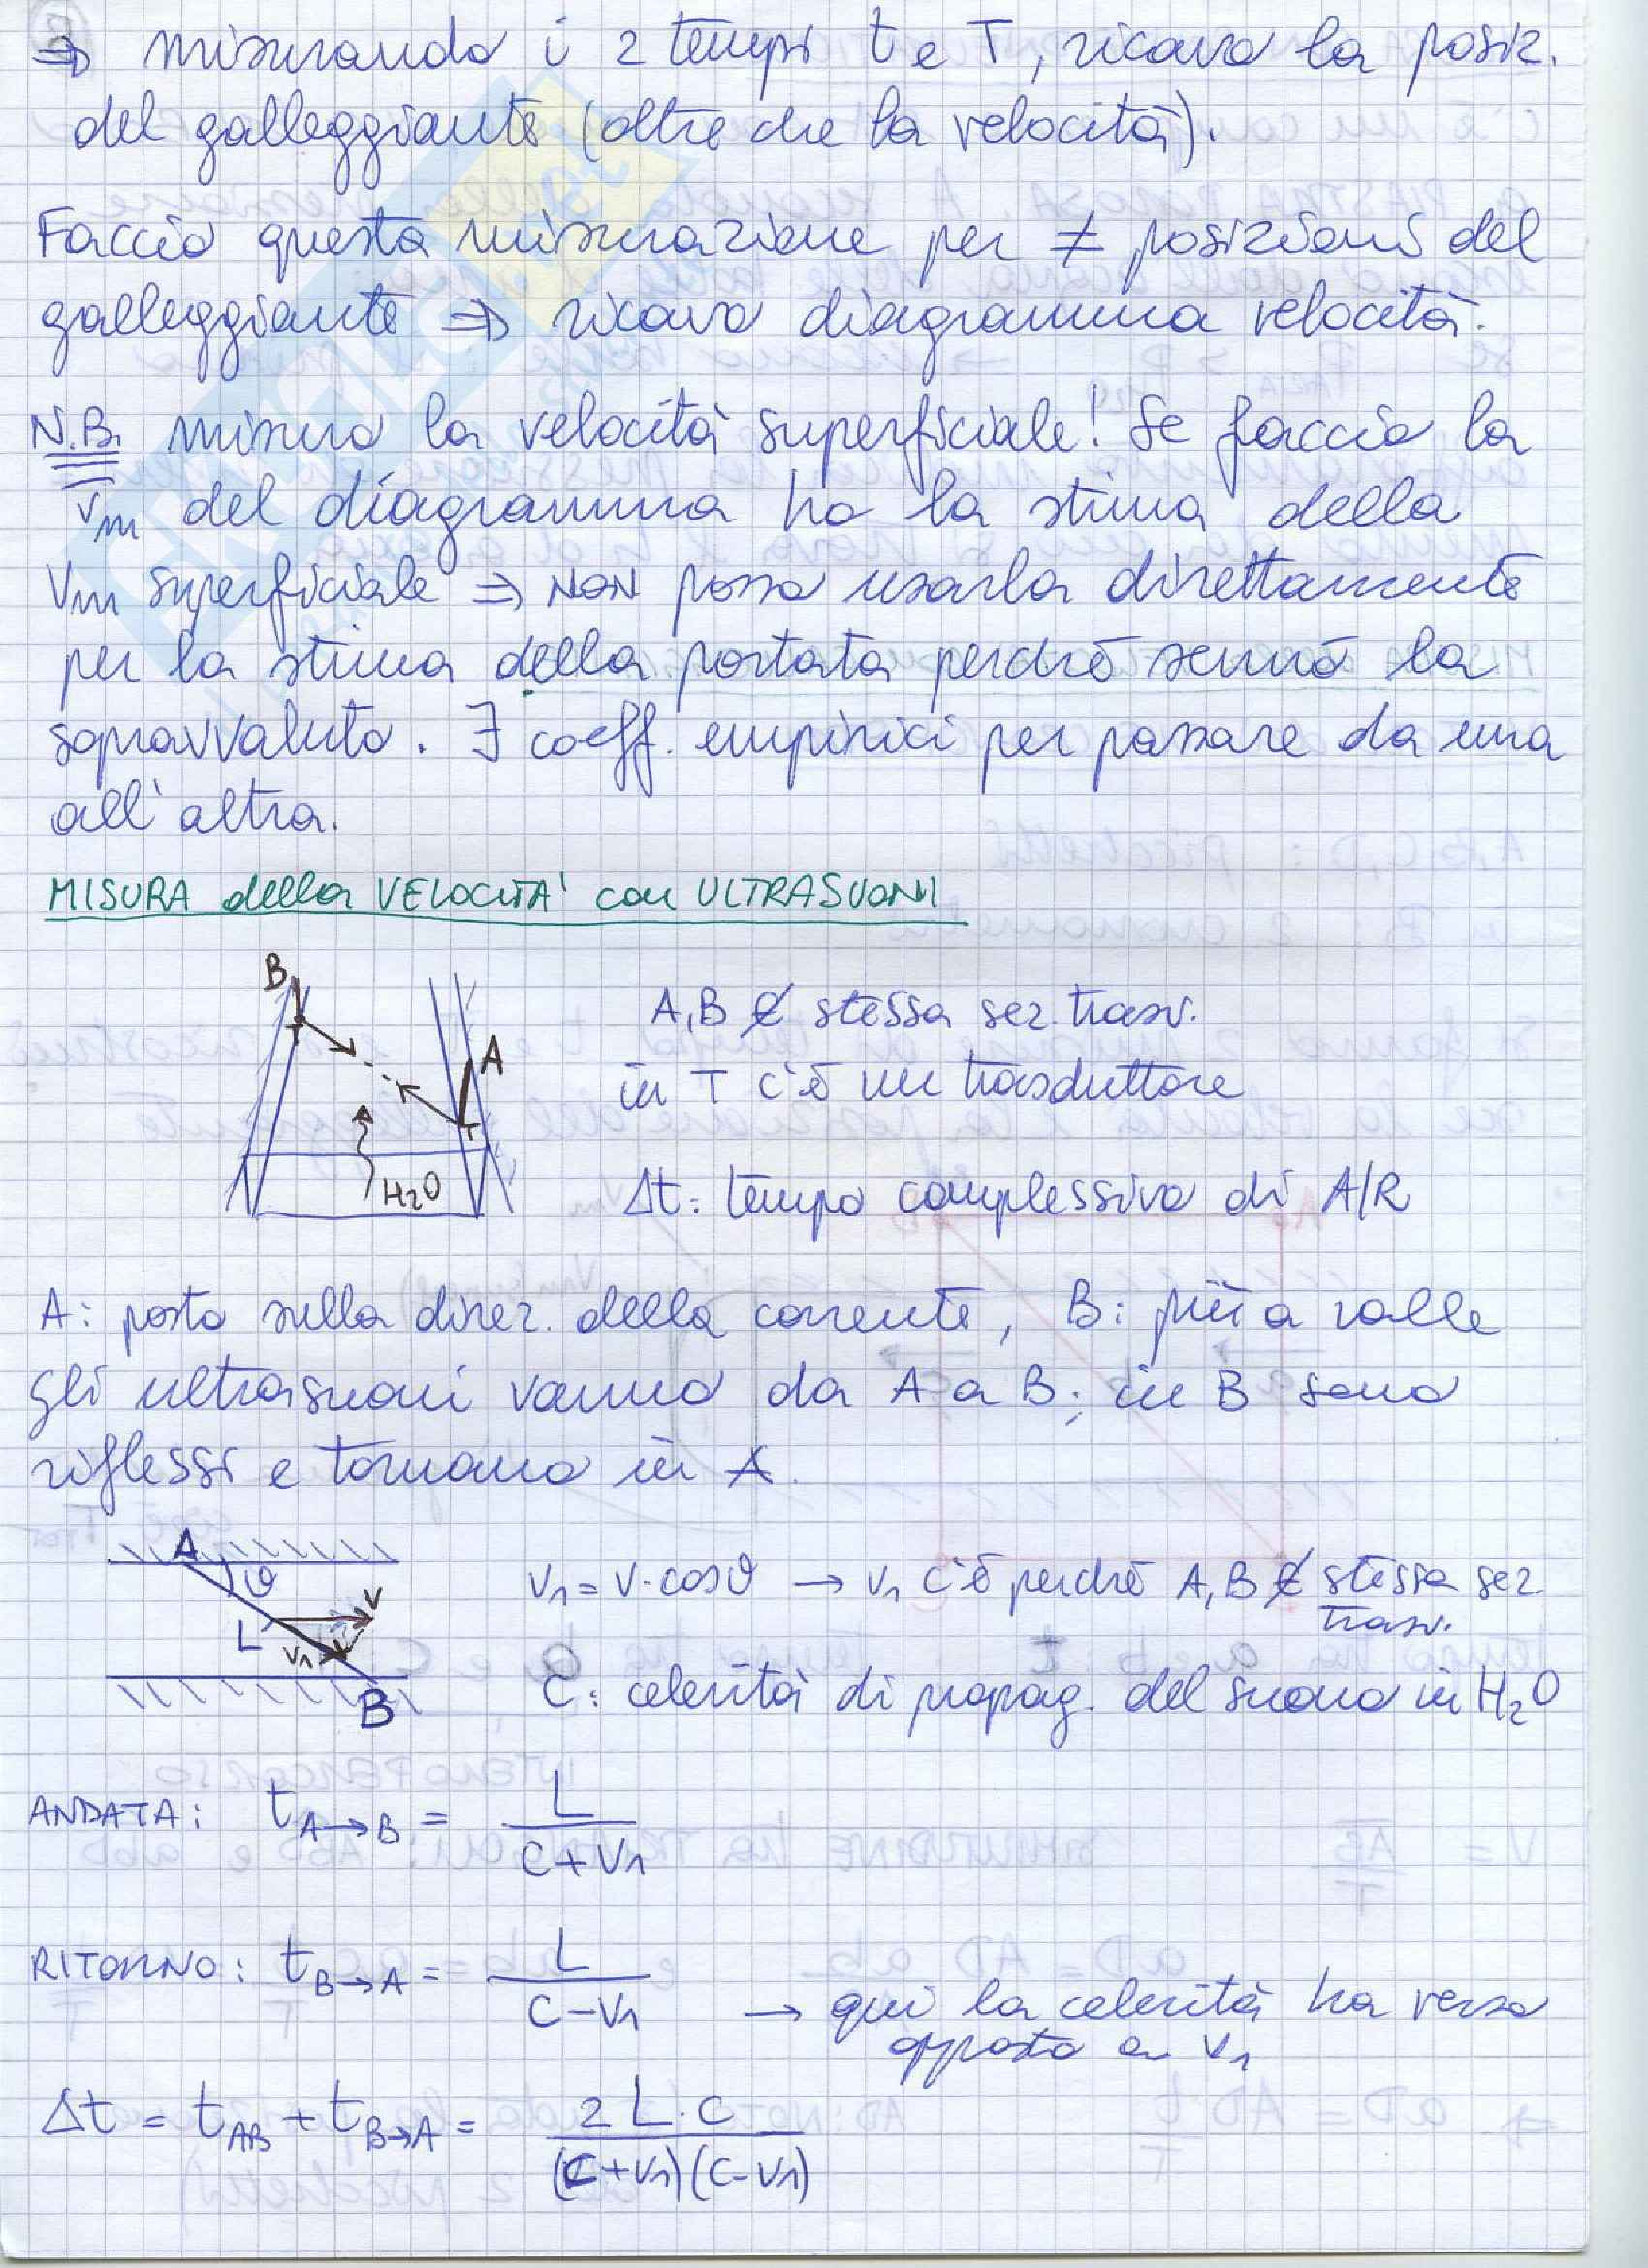 ⇒ misurando i 2 tempi t e T, ricavo la posiz.
del galleggiante (oltre che la velocità).
Faccio questa misurazione per ≠ posizioni del
galleggiante ⇒ ricavo diagramma velocità.
N.B. misuro la velocità superficiale! Se faccio la
vm del diagramma ho la stima della
vm superficiale ⇒ NON posso usarla direttamente
per la stima della portata perchè sennò la
sopravvaluto. ∃ coeff. empirici per passare da una
all'altra.
MISURA della VELOCITA' con ULTRASUONI
B
A
H2O
A,B ∉ stessa sez. trasv.
in T c'è un trasduttore
Δt: tempo complessivo di A/R
A: posto sulla direz. della corrente, B: più a valle
gli ultrasuoni vanno da A a B; in B sono
riflessi e tornano in A.
A
ϑ
v
L
v1
B
v1 = v·cosϑ → v1 c'è perchè A,B ∉ stessa sez.
trasv.
C: celerità di propag. del suono in H2O
ANDATA: tA→B = L / (C+v1)
RITORNO: tB→A = L / (C-v1) → qui la celerità ha verso
opposto a v1
Δt = tAB + tB→A = 2L·C / (C+v1)(C-v1)